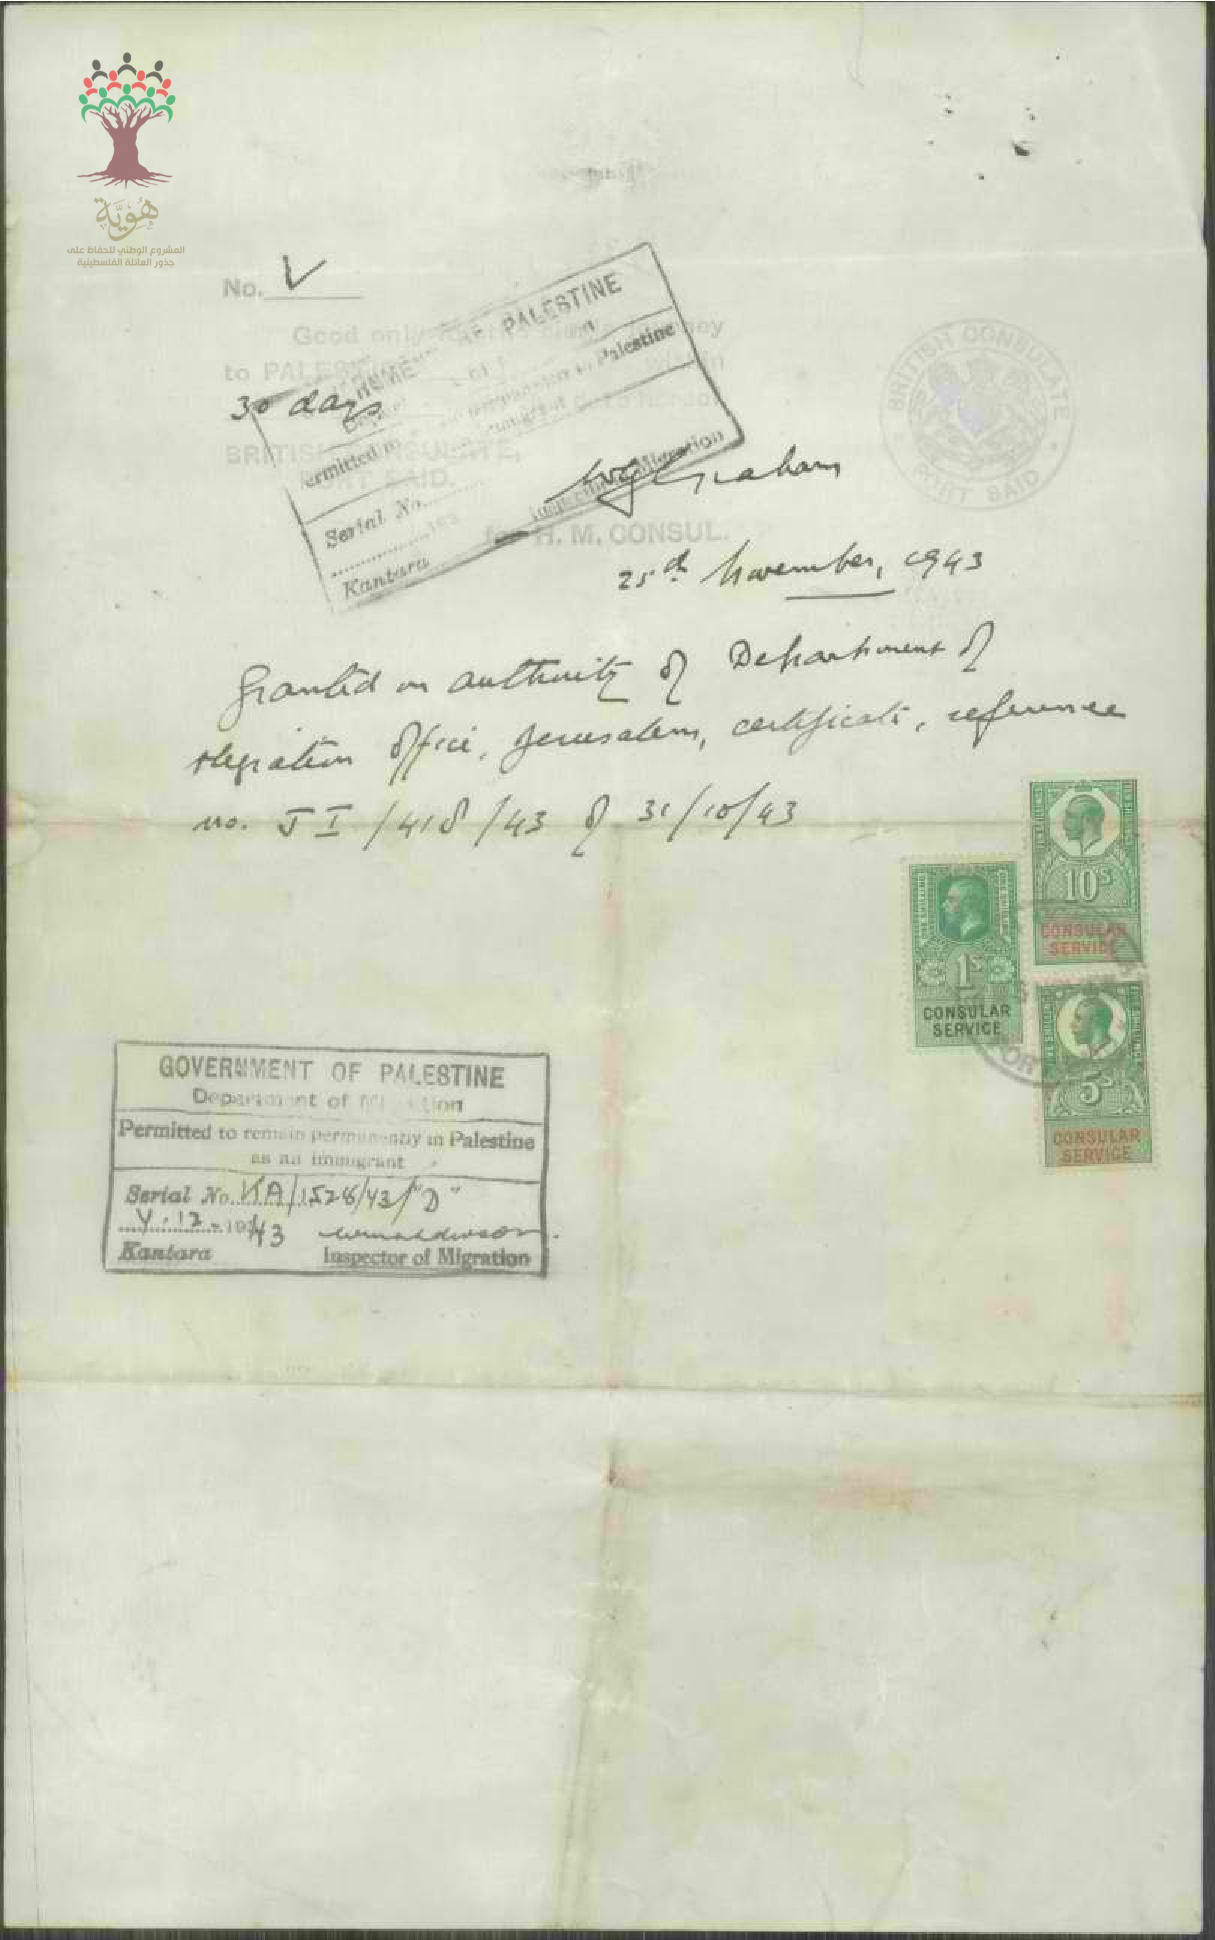 هُوِيَّة
المشروع الوطني للحفاظ على
جذور العائلة الفلسطينية
No. V
Good only
to PALESTINE
30 days
BRITISH CONSULATE,
PORT SAID.
for H. M. CONSUL.
25th November, 1943
PALESTINE
Serial No.
Kantara
Inspector of Migration
BRITISH CONSULATE
PORT SAID
Granted on authority of Department of
Migration Office, Jerusalem, certificate, reference
no. J I /418/43 of 31/10/43
10s
CONSULAR
SERVICE
1s
CONSULAR
SERVICE
5s
CONSULAR
SERVICE
GOVERNMENT OF PALESTINE
Department of Migration
Permitted to remain permanently in Palestine
as an immigrant
Serial No. KA/1528/43/"D"
12-1943
Kantara
Inspector of Migration